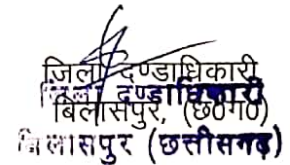 जिला दण्डाधिकारी
जिला दण्डाधिकारी
बिलासपुर, (छ०ग०)
बिलासपुर (छत्तीसगढ़)